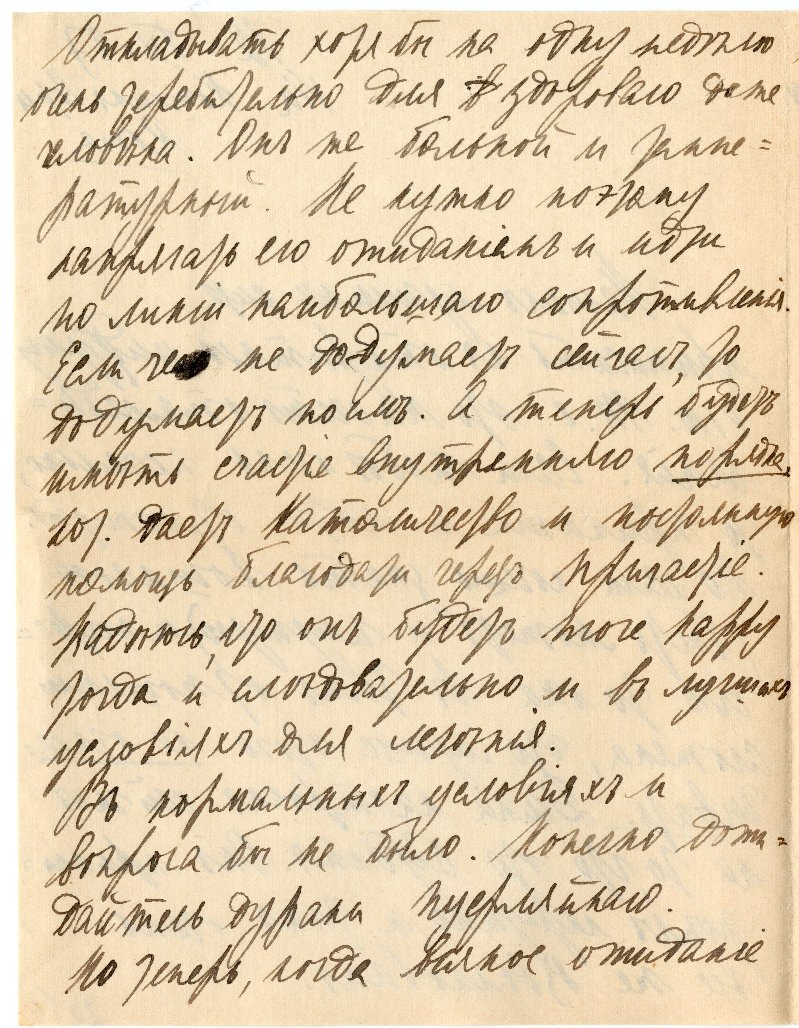 Откладывать хотя бы на одну недѣлю
очень чревательно для здороваго даже
человѣка. Онъ же больной и темпе=
ратурный. Не нужно поэтому
напрягать его ожиданіемъ и идти
по линіи наибольшаго сопротивленія.
Если чего не додумаетъ сейчасъ, то
додумаетъ послѣ. А теперь будетъ
имѣть счастіе внутренняго порядка,
кот. даетъ Католичество и постоянную
помощь благодати черезъ Причастіе.
Надѣюсь, что онъ будетъ тоже
тогда и слѣдовательно и въ лучшихъ
условіяхъ для леченія.
Въ нормальныхъ условіяхъ и
вопроса бы не было. Конечно дожи=
дайтесь
Но теперь, когда всякое ожиданіе